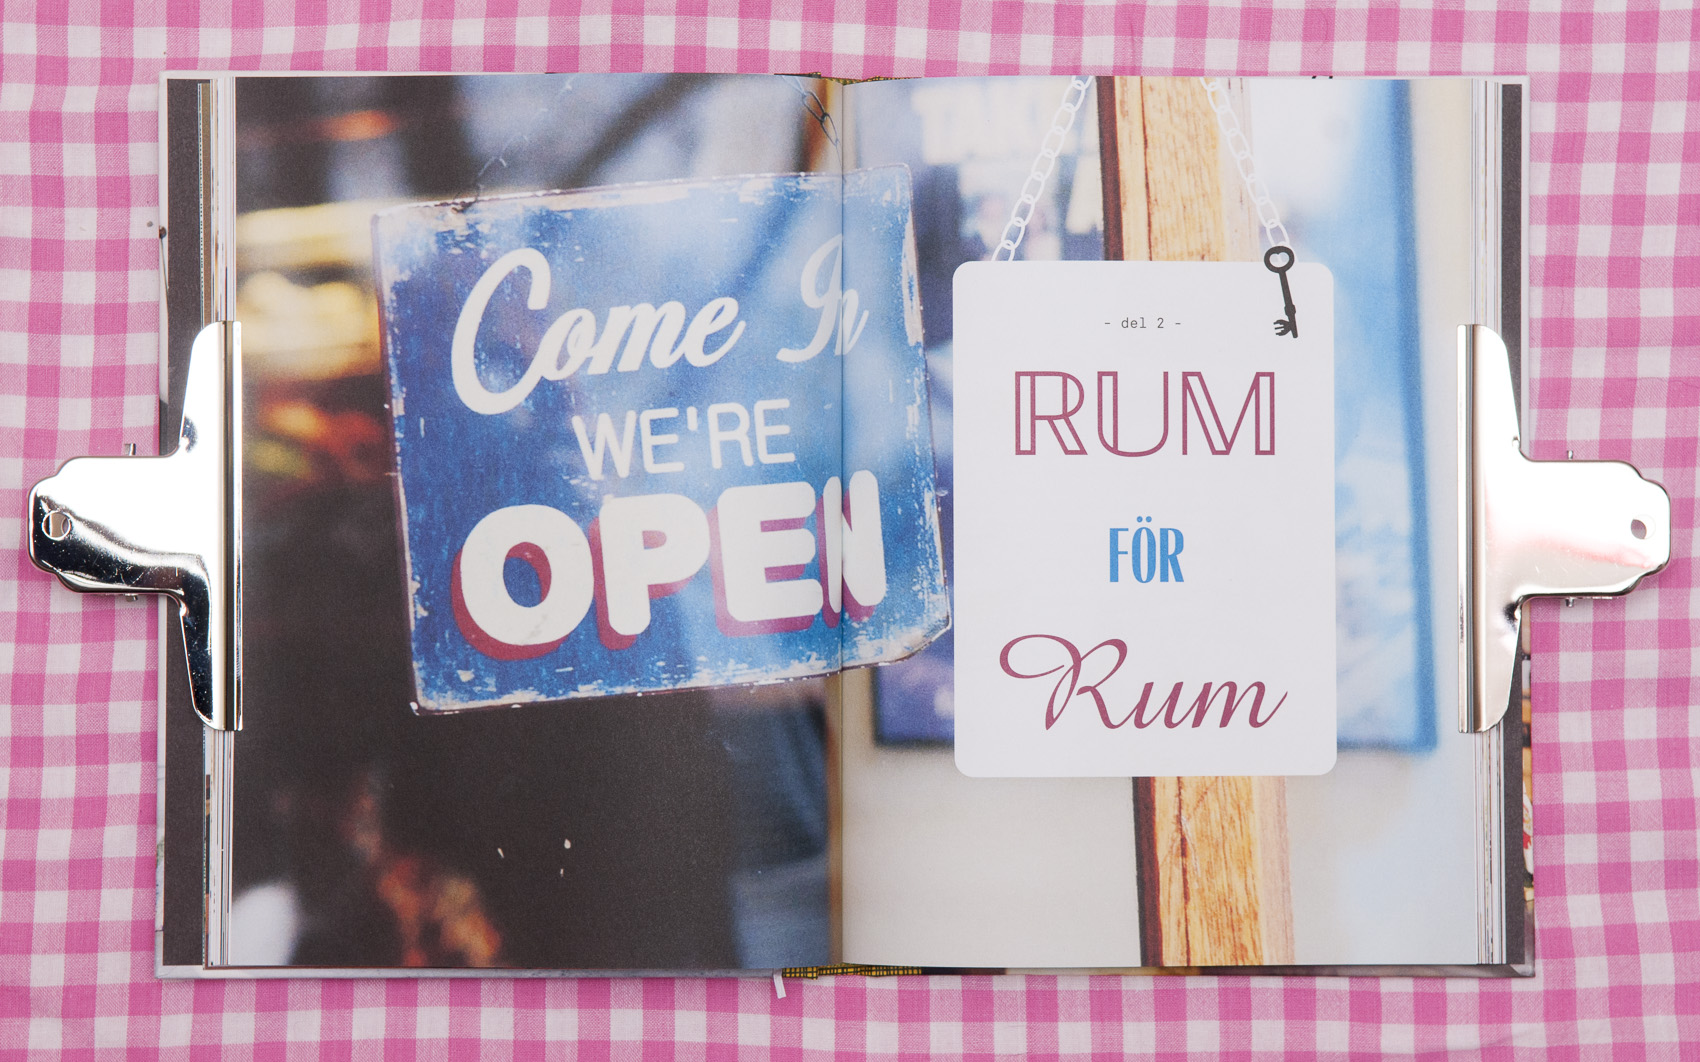 Come In
WE'RE
OPEN
- del 2 -
RUM
FÖR
Rum